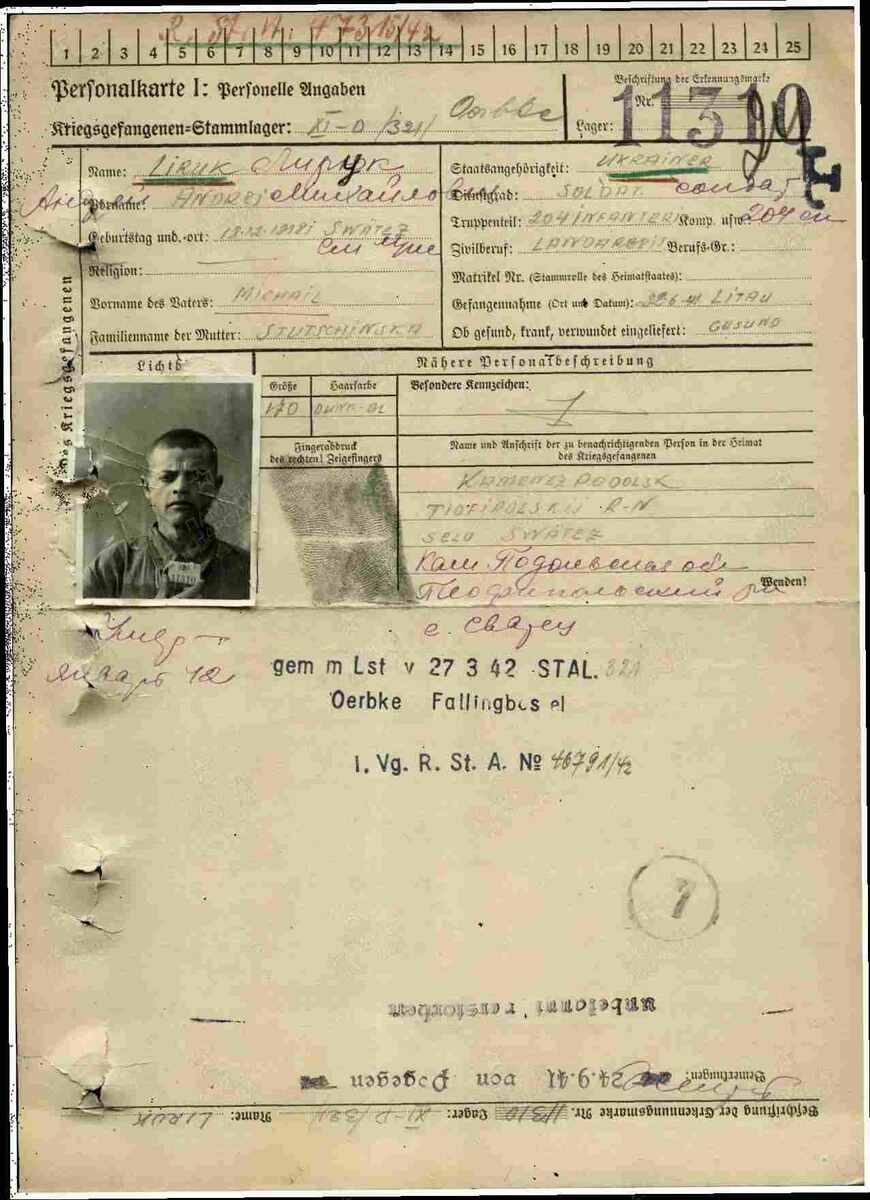 R. St. Nr: 47315/42
1 2 3 4 5 6 7 8 9 10 11 12 13 14 15 16 17 18 19 20 21 22 23 24 25
Personalkarte I: Personelle Angaben
Kriegsgefangenen=Stammlager: XI-D /321/ Oerbke
Beschriftung der Erkennungsmarke
Nr. 11310
Lager:
des Kriegsgefangenen
Name: LIRUK Лирук
Vorname: ANDREJ Михайлович
Geburtstag und -ort: SWATEZ
Religion:
Vorname des Vaters: MICHAIL
Familienname der Mutter: STUTSCHINSKA
Staatsangehörigkeit: UKRAINER
Dienstgrad: SOLDAT солдат
Truppenteil: 204 INFANTERI Komp. usw.: 204
Zivilberuf: LANDARBEIT Berufs-Gr.:
Matrikel Nr. (Stammrolle des Heimatstaates):
Gefangennahme (Ort und Datum): LITAU
Ob gesund, krank, verwundet eingeliefert: GESUND
Lichtb
Nähere Personalbeschreibung
Größe Haarfarbe Besondere Kennzeichen:
170
Fingerabdruck
des rechten! Zeigefingers
Name und Anschrift der zu benachrichtigenden Person in der Heimat
des Kriegsgefangenen
KAMENEZ PODOLSK
TIOFIPOLSKII R-N
SELO SWATEZ
Кам Подольская обл
Теофипольский
Wenden!
с. Сватец
Умер
январь 42
gem m Lst v 27 3 42 STAL. 321
Oerbke Fallingbostel
I. Vg. R. St. A. № 46791/42
7
unbekannt verstorben
Bemerkungen: 24.9.41 von Pogegen
Beschriftung der Erkennungsmarke Nr. 11310 Lager: XI-D/321 Name: LIRUK